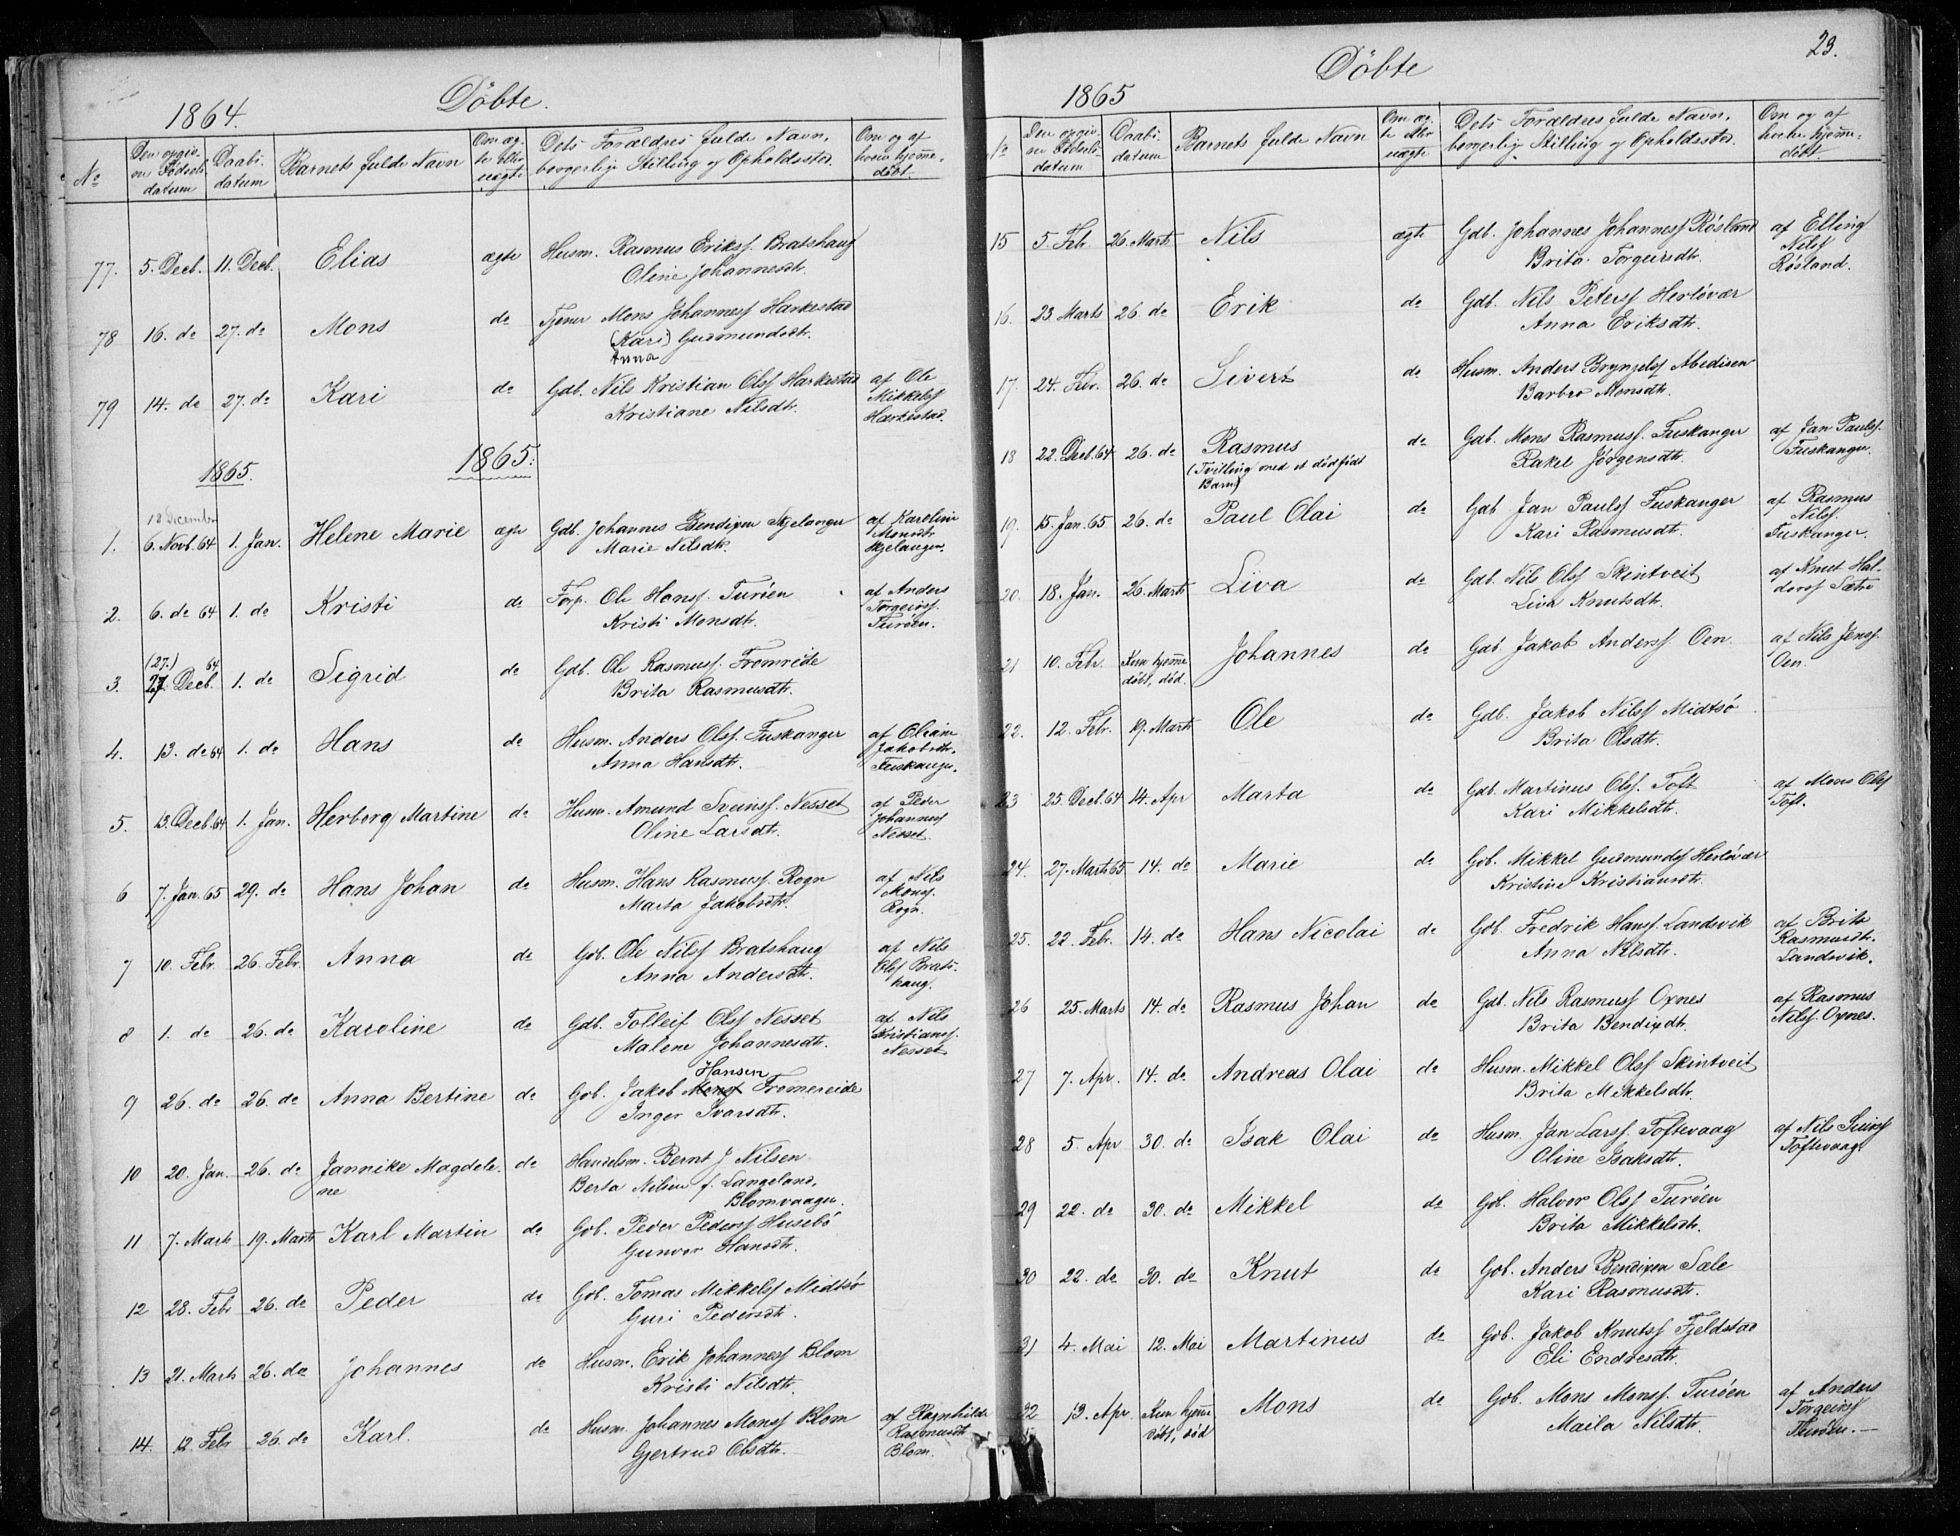 1864. Döbte.
No
Den opgiv-
ne Födsels
datum
Daabs
datum
Barnets fulde Navn
Om æg-
te eller
uægte
Dets Forældres fulde Navn,
borgerlige Stilling og Opholdssted.
Om og af
hvem hjemme-
döbt.
77. 5. Decb. 11. Decb. Elias ægte Husm. Rasmus Erikss Bratshaug
Oline Johannesdtr.
78 16. do 27. do Mons do Tjener Mons Johanness Harkestad
(Kari) Gudmundsdtr.
Anna
79 14. do 27. do Kari do Gdb. Nils Kristian Olss Harkestad af Ole
Kristiane Nilsdtr. Mikkels
Harkestad.
1865. 1865.
18 December
1. 6. Novb. 64 1. Jan. Helene Marie ægte Gdb. Johannes Bendixen Skjelanger af Karoline
Marie Nilsdtr. Monsdtr
Skjelanger.
2. 6. do 64 1. do Kristi do Forp. Ole Hanss. Turöen af Anders
Kristi Monsdtr. Torgeirss.
Turöen.
(27.) 64
3. 27. Decb. 1. do Sigrid do Gdb. Ole Rasmuss. Fromreide
Brita Rasmusdtr.
4. 13. do 64 1. do Hans do Husm. Anders Olss. Fuskanger af Oliane
Anna Hansdtr. Jakobsdtr.
Fuskanger.
5. 13. Decb. 64 1. Jan. Herborg Martine do Husm. Amund Sveinss. Nesset af Peder
Oline Larsdtr. Johanness
Nesset.
6 7. Jan. 65 29. do Hans Johan do Husm. Hans Rasmuss. Rogn af Nils
Marta Jakobsdtr. Monss.
Rogn.
7 10. Febr. 26. Febr. Anna do Gdb. Ole Nilss Bratshaug af Nils
Anna Andersdtr. Olss Brats-
haug.
8 1. do 26. do Karoline do Gdb. Tolleif Olss Nesset af Nils
Malene Johannesdtr. Kristianss.
Nesset
Hansen
9 26. do 26. do Anna Bertine do Gdb. Jakob Monss Fromereide
Inger Ivarsdtr.
10 20. Jan. 26. do Jannike Magdele- do Handelsm. Bernt J. Nilsen
ne Berta Nilsen f. Langeland,
Blomvaagen.
11 7. Marts 19. Marts Karl Martin do Gdb. Peder Pederss Husebö
Gunvor Hansdtr.
12 28. Febr 26. do Peder do Gdb. Tomas Mikkelss Midtsö
Guri Pedersdtr.
13 21. Marts 26. do Johannes do Husm. Erik Johanness Blom
Kristi Nilsdtr.
14. 12. Febr 26. do Karl. do Husm. Johannes Monss Blom af Ragnhilde
Gjertrud Olsdtr. Rasmusdtr
Blom.
23.
1865 Döbte
No
Den opgiv-
ne Födsels-
datum
Daabs-
datum
Barnets fulde Navn
Om æg-
te eller
uægte
Dets Forældres fulde Navn,
borgerlig Stilling og Opholdssted.
Om og af
hvem hjemme-
döbt.
15 5. Febr. 26. Marts Nils ægte Gdb. Johannes Johanness Rösland af Elling
Brita Torgeirsdtr. Nilss
Rösland.
16. 23. Marts 26. do Erik do Gdb. Nils Peterss Herlövær
Anna Eriksdtr.
17. 24. Febr. 26. do Sivert do Husm. Anders Brynjelss Abedisen
Barbro Monsdtr.
18 22. Decb. 64 26. do Rasmus do Gdb. Mons Rasmuss. Fuskanger af Jan Paulss.
(Tvilling med et dödfödt Rakel Jörgensdtr. Fuskanger.
Barn)
19. 15. Jan. 65 26. do Paul Olai do Gdb Jan Paulss Fuskanger af Rasmus
Kari Rasmusdtr. Nilss.
Fuskanger.
20. 18. Jan. 26. Marts Liva do Gdb. Nils Olss Skintveit af Knut Hal-
Liva Knutsdtr. dorss Sætre
21 10. Febr. Kun hjemme Johannes do Gdb. Jakob Anderss Oen af Nils Jenss.
döbt, död. Oen.
22. 12. Febr. 19. Marts Ole do Gdb. Jakob Nilss Midtsö
Brita Olsdtr.
23 25. Decb. 64 14. Apr Marta do Gdb. Martinus Olss. Toft af Mons Olss
Kari Mikkelsdtr. Toft.
24. 27. Marts 65 14. do Marie do Gdb. Mikkel Gudmundss Herlövær
Kristine Kristiansdtr.
25. 22. Febr. 14. do Hans Nicolai do Gdb. Fredrik Hanss. Landsvik af Brita
Anna Nilsdtr. Rasmusdtr.
Landsvik.
26 25. Marts 14. do Rasmus Johan do Gdb. Nils Rasmuss Oxnes af Rasmus
Brita Bendixdtr. Nilss. Oxnes.
27 7. Apr. 14. do Andreas Olai do Husm. Mikkel Olss Skintveit
Brita Mikkelsdtr.
28 5. Apr 30. do Isak Olai do Husm. Jan Larss. Toftevaag af Nils
Oline Isaksdtr. Toftevaag.
29 22. do 30. do Mikkel do Gdb. Halvor Olss Turöen
Brita Mikkelsdtr.
30 22. do 30. do Knut do Gdb. Anders Bendixen Sæle
Kari Rasmusdtr.
31 4. Mai 12. Mai Martinus do Gdb. Jakob Knutss Fjeldstad
Eli Endresdtr.
32 13. Apr. Kun hjemme Mons do Gdb. Mons Monss. Turöen af Anders
döbt, död Maila Nilsdtr. Torgeirss
Turöen.